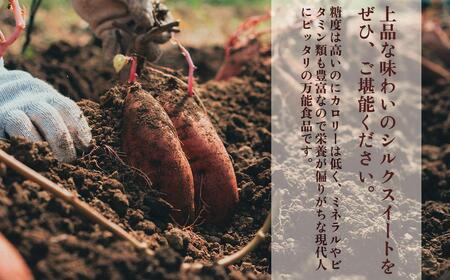 上品な味わいのシルクスイートを
ぜひ、ご堪能ください。
糖度は高いのにカロリーは低く、ミネラルやビ
タミン類も豊富なので栄養が偏りがちな現代人
にピッタリの万能食品です。